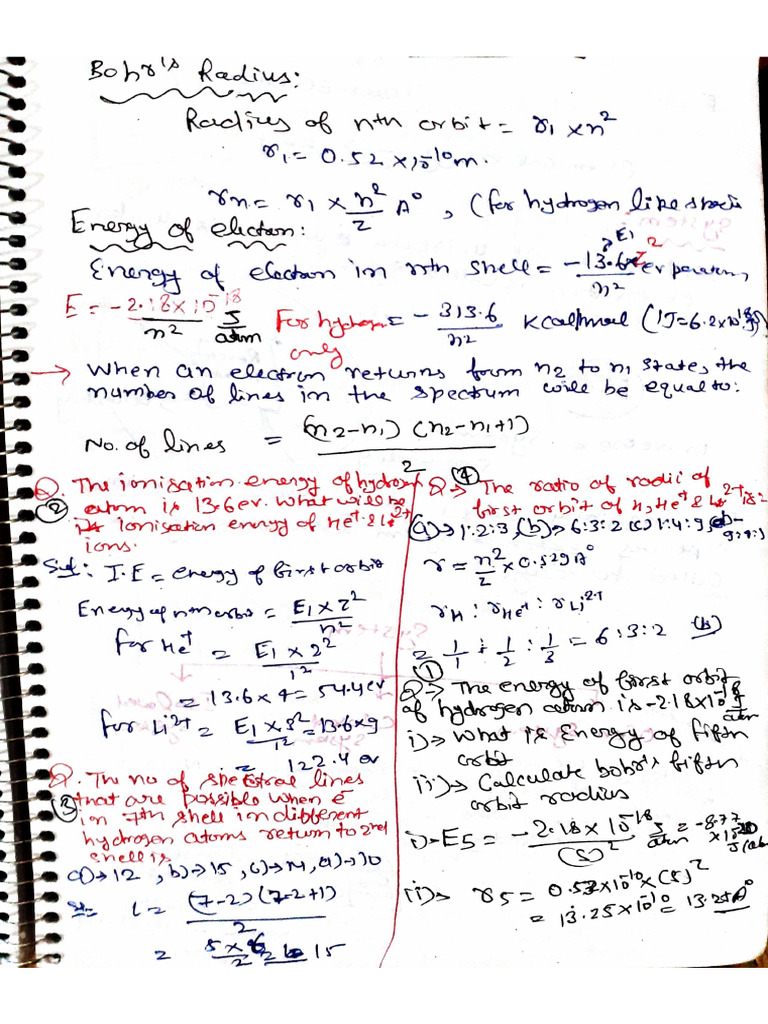 Bohr's Radius:
Radius of nth orbit = r1 × n²
r1 = 0.52 × 10⁻¹⁰ m.
rn = r1 × n²/Z A°, (for hydrogen like
Energy of electron:
Energy of electron in nth shell = -13.6 × Z²/n² ev per atom,
E1
E = -2.18 × 10⁻¹⁸/n² J/atom For hydrogen only = -313.6/n² Kcal/mol (1J = 6.2 × 10¹⁸
→ When an electron returns from n2 to n1 states, the
number of lines in the spectrum will be equal to:
No. of lines = (n2-n1) (n2-n1+1)/2
Q. The ionisation energy of hydrogen
② atom is 13.6 ev. What will be
its ionisation energy of He⁺ & Li²⁺
ions.
Sol: I.E = energy of first orbit
Energy of nth orbit = E1 × Z²/n²
for He⁺ = E1 × 2²/1²
= 13.6 × 4 = 54.4 ev
for Li²⁺ = E1 × 3²/1² = 13.6 × 9
= 122.4 ev
Q. The no of spectral lines
③ that are possible when e
in 7th shell in different
hydrogen atoms return to 2nd
shell is
a) → 12, b) → 15, c) → 14, d) → 10
Sol: l = (7-2) (7-2+1)/2
= 5 × 6/2 = 15
④
Q → The ratio of radii of
first orbit of H, He⁺ & Li²⁺ is:
(a) → 1:2:3, (b) → 6:3:2 (c) 1:4:9, (d) → 9:4:1
r = n²/Z × 0.529 A°
rH : rHe⁺ : rLi²⁺
= 1/1 : 1/2 : 1/3 = 6:3:2 (b)
①
Q → The energy of first orbit
of hydrogen atom is -2.18 × 10⁻¹⁸ J/atm
i) → What is Energy of fifth
orbit
ii) → Calculate bohr's fifth
orbit radius
i) → E5 = -2.18 × 10⁻¹⁸/(5)² J/atm = -8.77 × 10⁻²⁰
ii) → r5 = 0.53 × 10⁻¹⁰ × (5)²
= 13.25 × 10⁻¹⁰ = 13.25 A°